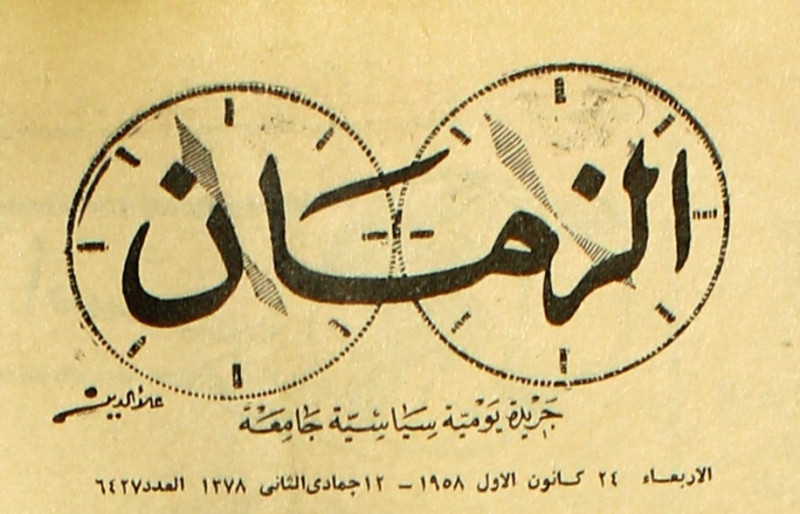 الزمان
جَرْيْدة يَوْميّة سِيَاسِيّة جَامِعَة
علاء الدين
الاربعاء ٢٤ كانون الاول ١٩٥٨ – ١٢ جمادى الثاني ١٣٧٨ العدد ٦٤٢٧